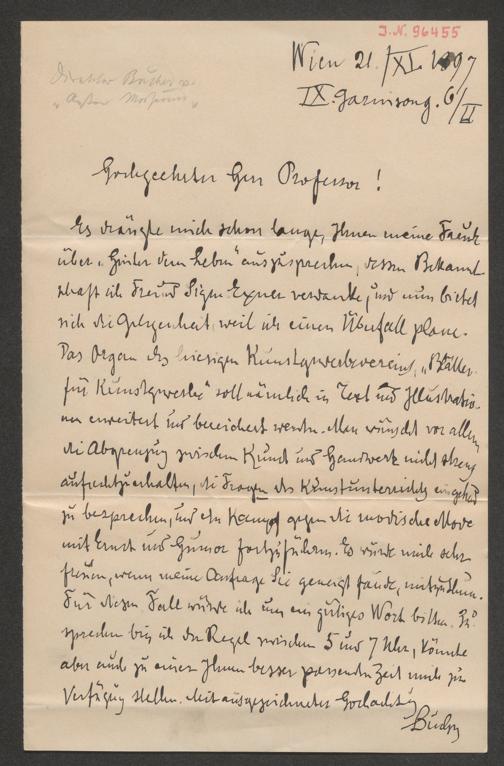 I.N. 96455
Wien 21./XI. 1897
IX. Garnisong. 6/II
Direktor Bucher
Hochgeehrter Herr Professor!
Es drängte mich schon lange, Ihnen meine Freude
über „Hinter dem Leben“ auszusprechen, dessen Bekannt-
schaft ich Freund Sigm. Exner verdanke, und nun bietet
sich die Gelegenheit, weil ich einen Überfall plane.
Das Organ des hiesigen Kunstgewerbevereins, „Blätter
für Kunstgewerbe“ soll nämlich in Text und Illustratio-
nen erweitert und bereichert werden. Man wünscht vor allem
die Abgrenzung zwischen Kunst und Handwerk nicht streng
aufrechtzuerhalten, die Fragen des Kunstunterrichts eingehend
zu besprechen, und den Kampf gegen die modische Mode
mit Ernst und Humor fortzuführen. Es würde mich sehr
freuen, wenn meine Anfrage Sie geneigt fände, mitzuthun.
Für diesen Fall würde ich um ein gütiges Wort bitten. Zu
sprechen bin ich der Regel zwischen 5 und 7 Uhr, könnte
aber auch zu einer Ihnen besser passenden Zeit mich zur
Verfügung stellen. Mit ausgezeichneter Hochachtung
Bucher